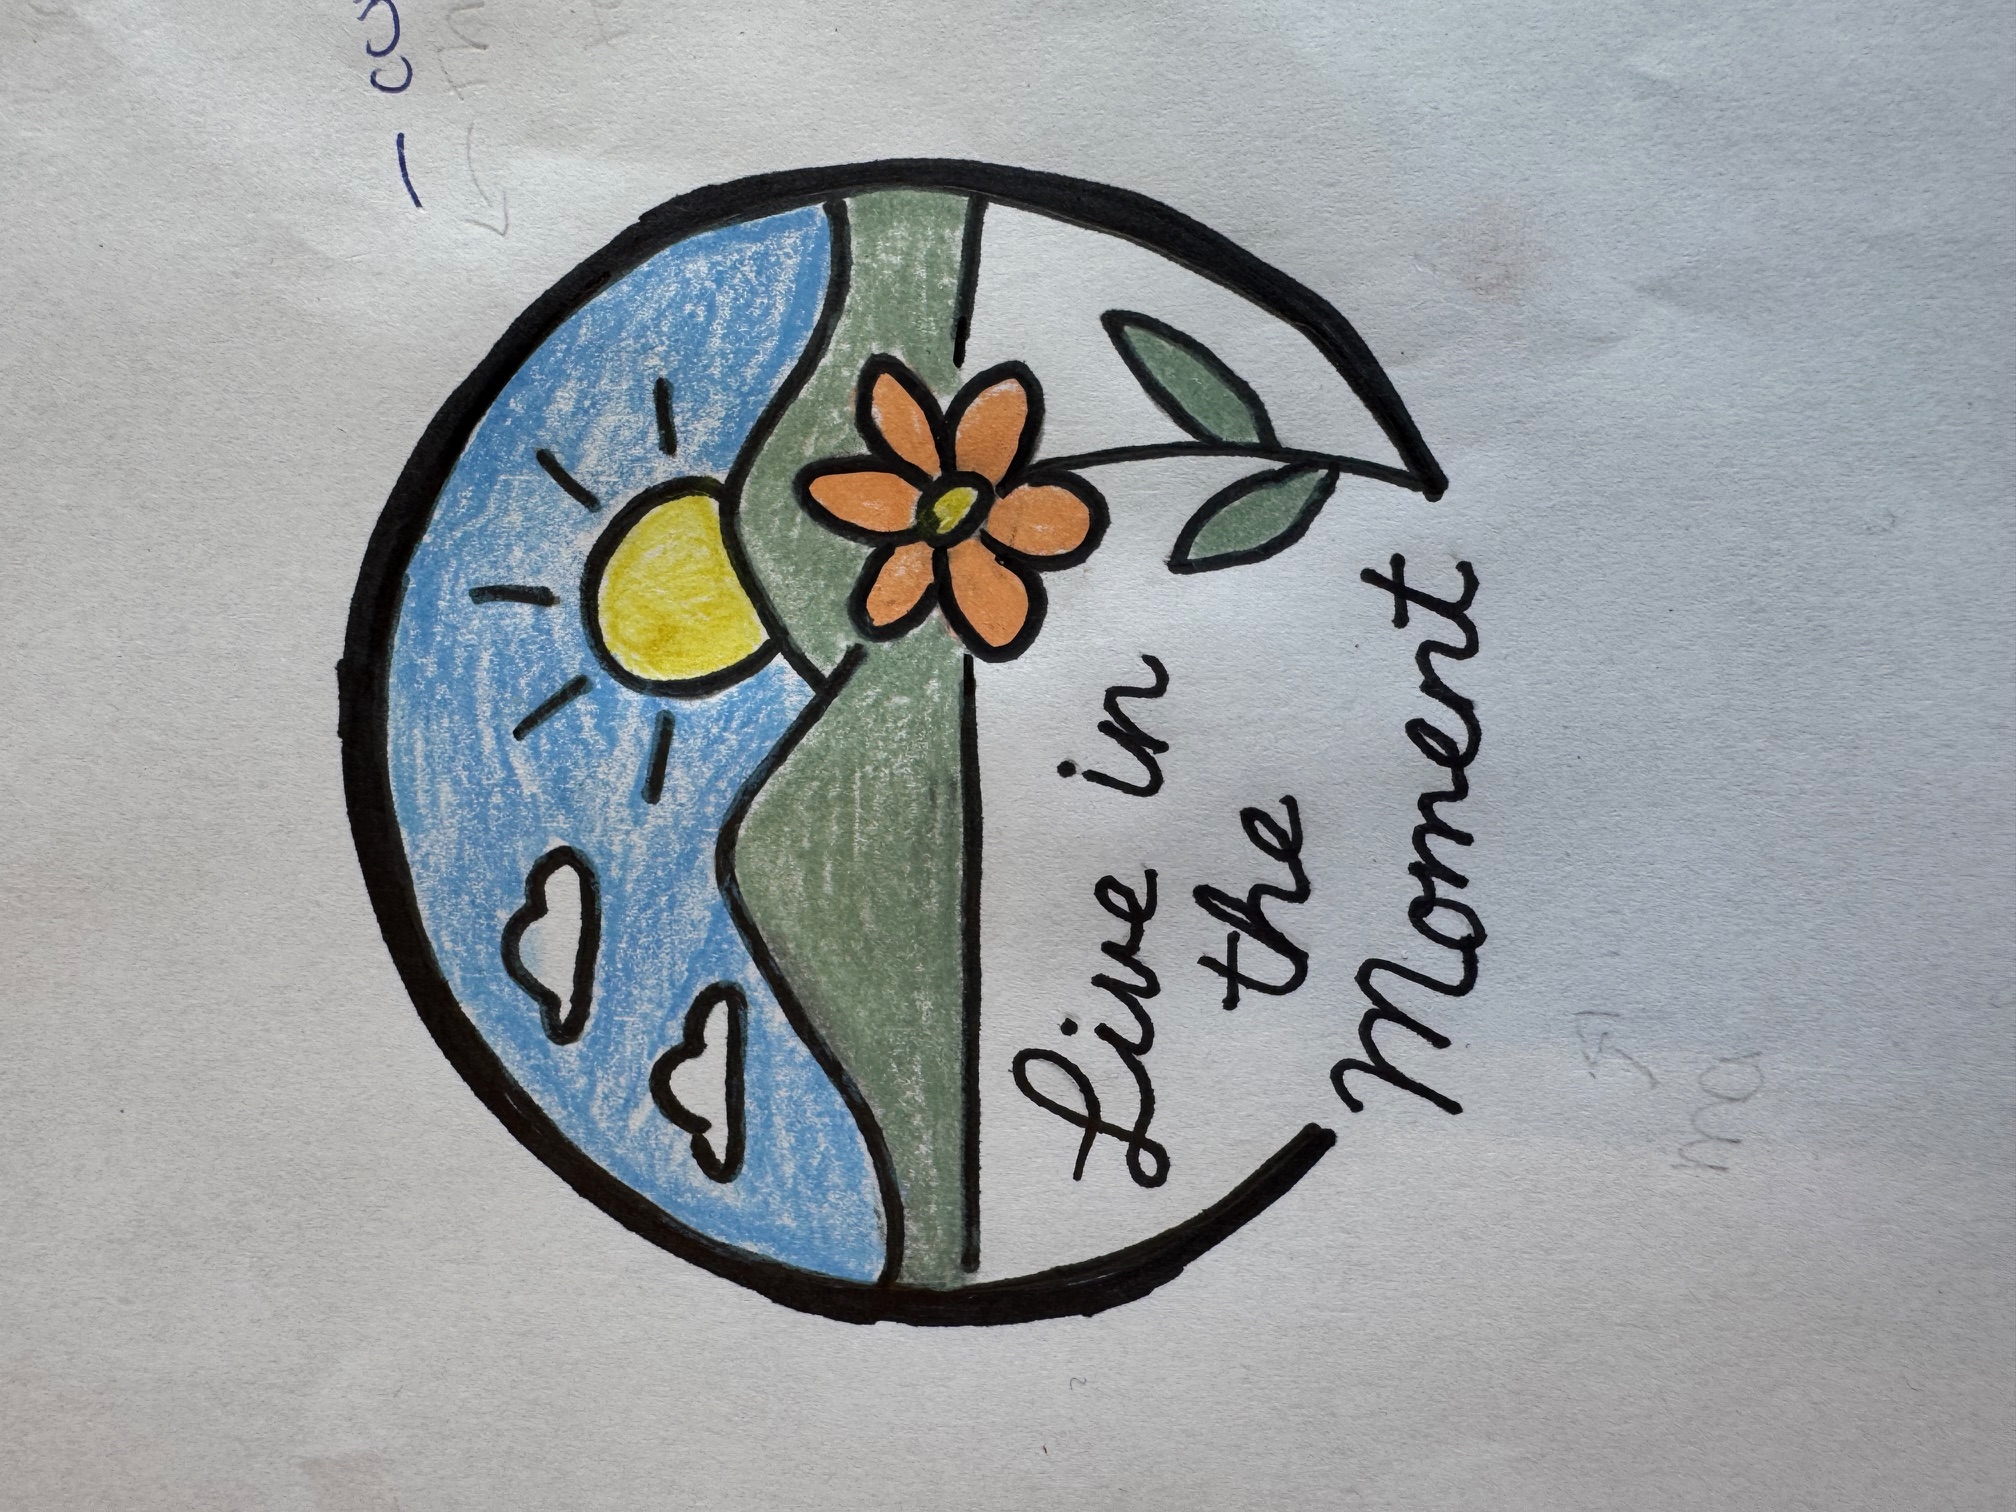 Live in
the
Moment
ma